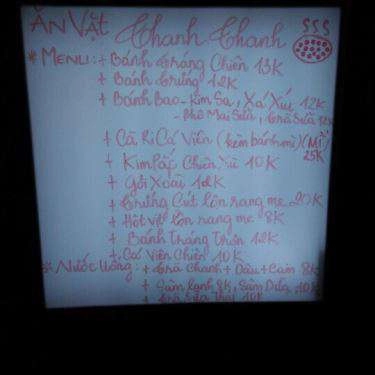 ĂN VẶT Chanh Chanh $$$
* MENU: + Bánh tráng Chiên 13K
+ Bánh trứng 12K
+ Bánh Bao - Kim Sa, Xá Xíu 12K
- Phô Mai Sữa, trà Sữa 12K
+ Cà Ri Cá Viên (kèm bánh mì) (MÌ) 25K
+ Kimbắp Chiên Xù 10K
+ Gỏi Xoài 12K
+ Trứng Cút lộn rang me 20K
+ Hột Vịt lộn rang me 8K
+ Bánh Tráng Trộn 12K
+ Cá Viên Chiên 10K
* Nước Uống: + trà Chanh + Dâu + Cam 8K
+ Sâm lạnh 8K, Sâm Dứa 10K
+ Trà Sữa Thái 10K